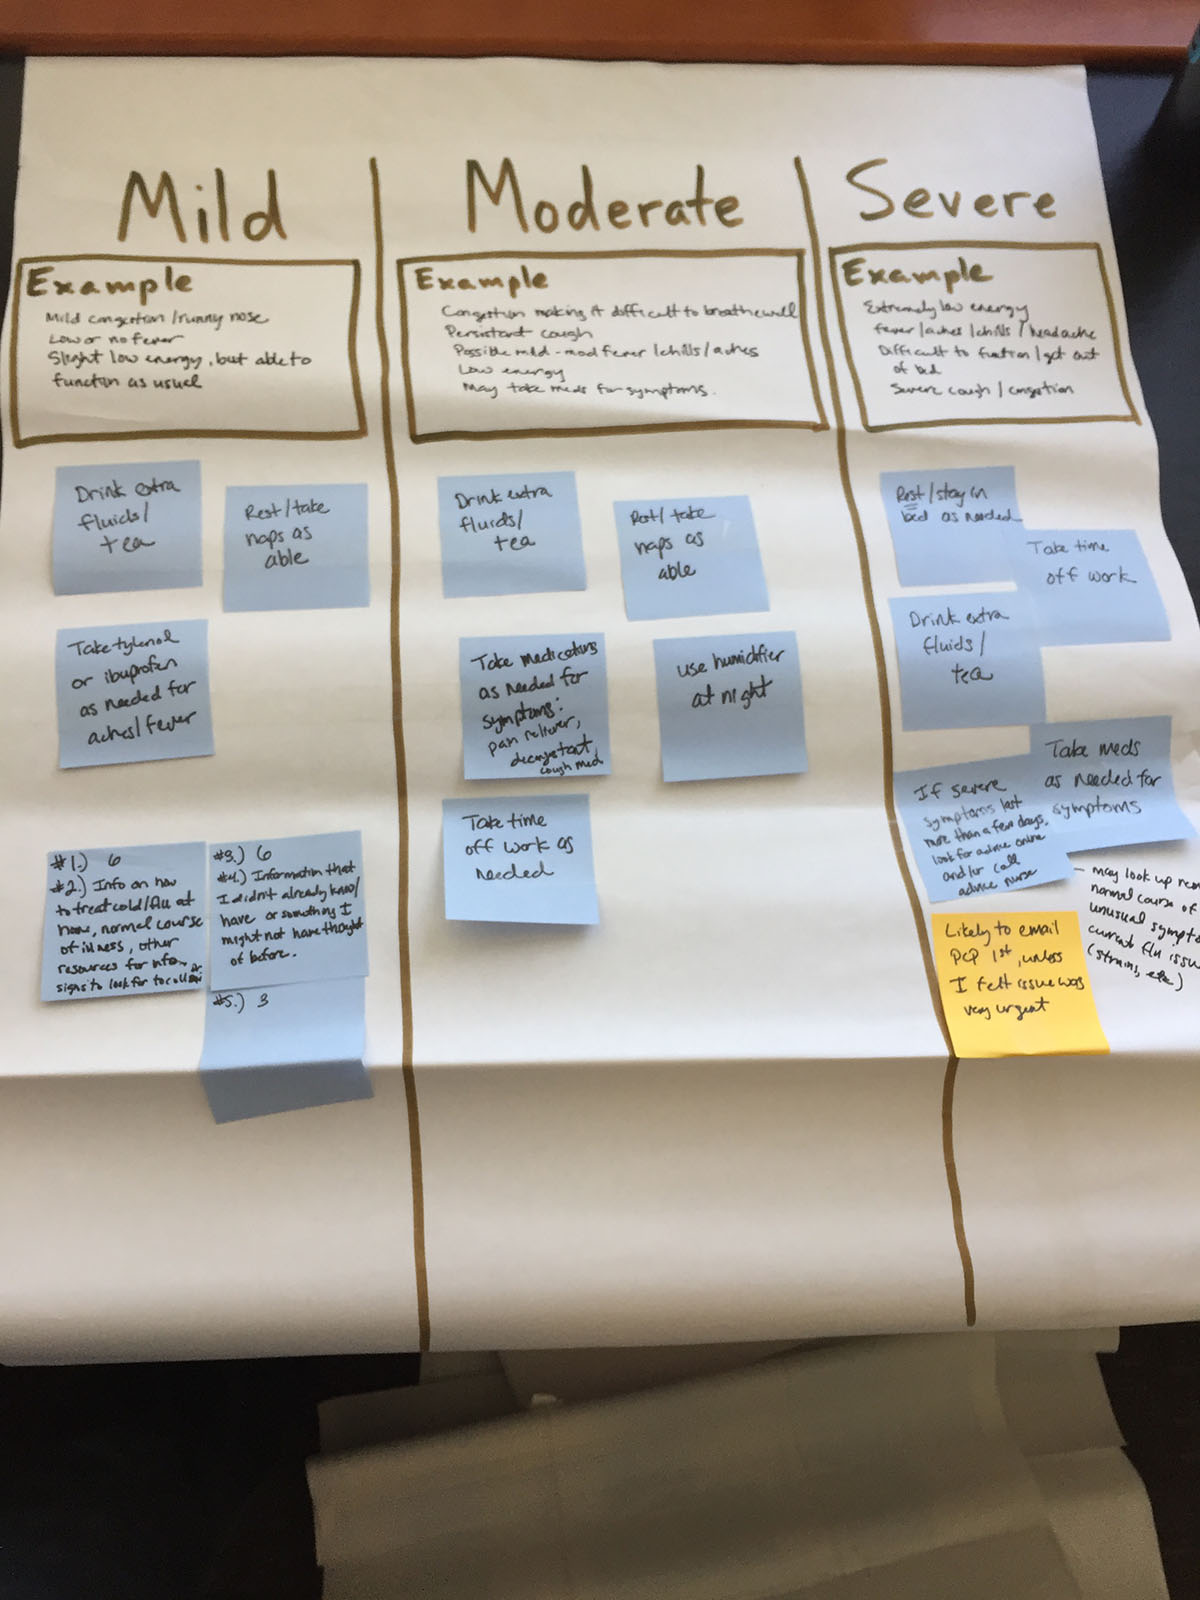 Mild
Example
Mild congestion/runny nose
Low or no fever
Slight low energy, but able to
function as usual
Drink extra
fluids/
tea
Rest/take
naps as
able
Take tylenol
or ibuprofen
as needed for
aches/fever
#1.) 6
#2.) Info on how
to treat cold/flu at
home, normal course
of illness, other
resources for info,
signs to look for to call
#3.) 6
#4.) Information that
I didn't already know/
have or something I
might not have thought
of before.
#5.) 3
Moderate
Example
Congestion making it difficult to breathe well
Persistant cough
Possible mild-mod fever/chills/aches
Low energy
May take meds for symptoms.
Drink extra
fluids/
tea
Rest/take
naps as
able
Take medications
as needed for
symptoms:
pain reliever,
decongestant
cough med
use humidifier
at night
Take time
off work as
needed
Severe
Example
Extremely low energy
fever/aches/chills/headache
Difficult to function/get out
of bed
Severe cough/congestion
Rest/stay in
bed as needed
Take time
off work
Drink extra
fluids/
tea
Take meds
as needed for
symptoms
If severe
symptoms last
more than a few days,
look for advice online
and/or call
advice nurse
– may look up
normal course of
unusual
current flu
(strains, etc)
Likely to email
PCP 1st, unless
I felt issue was
very urgent